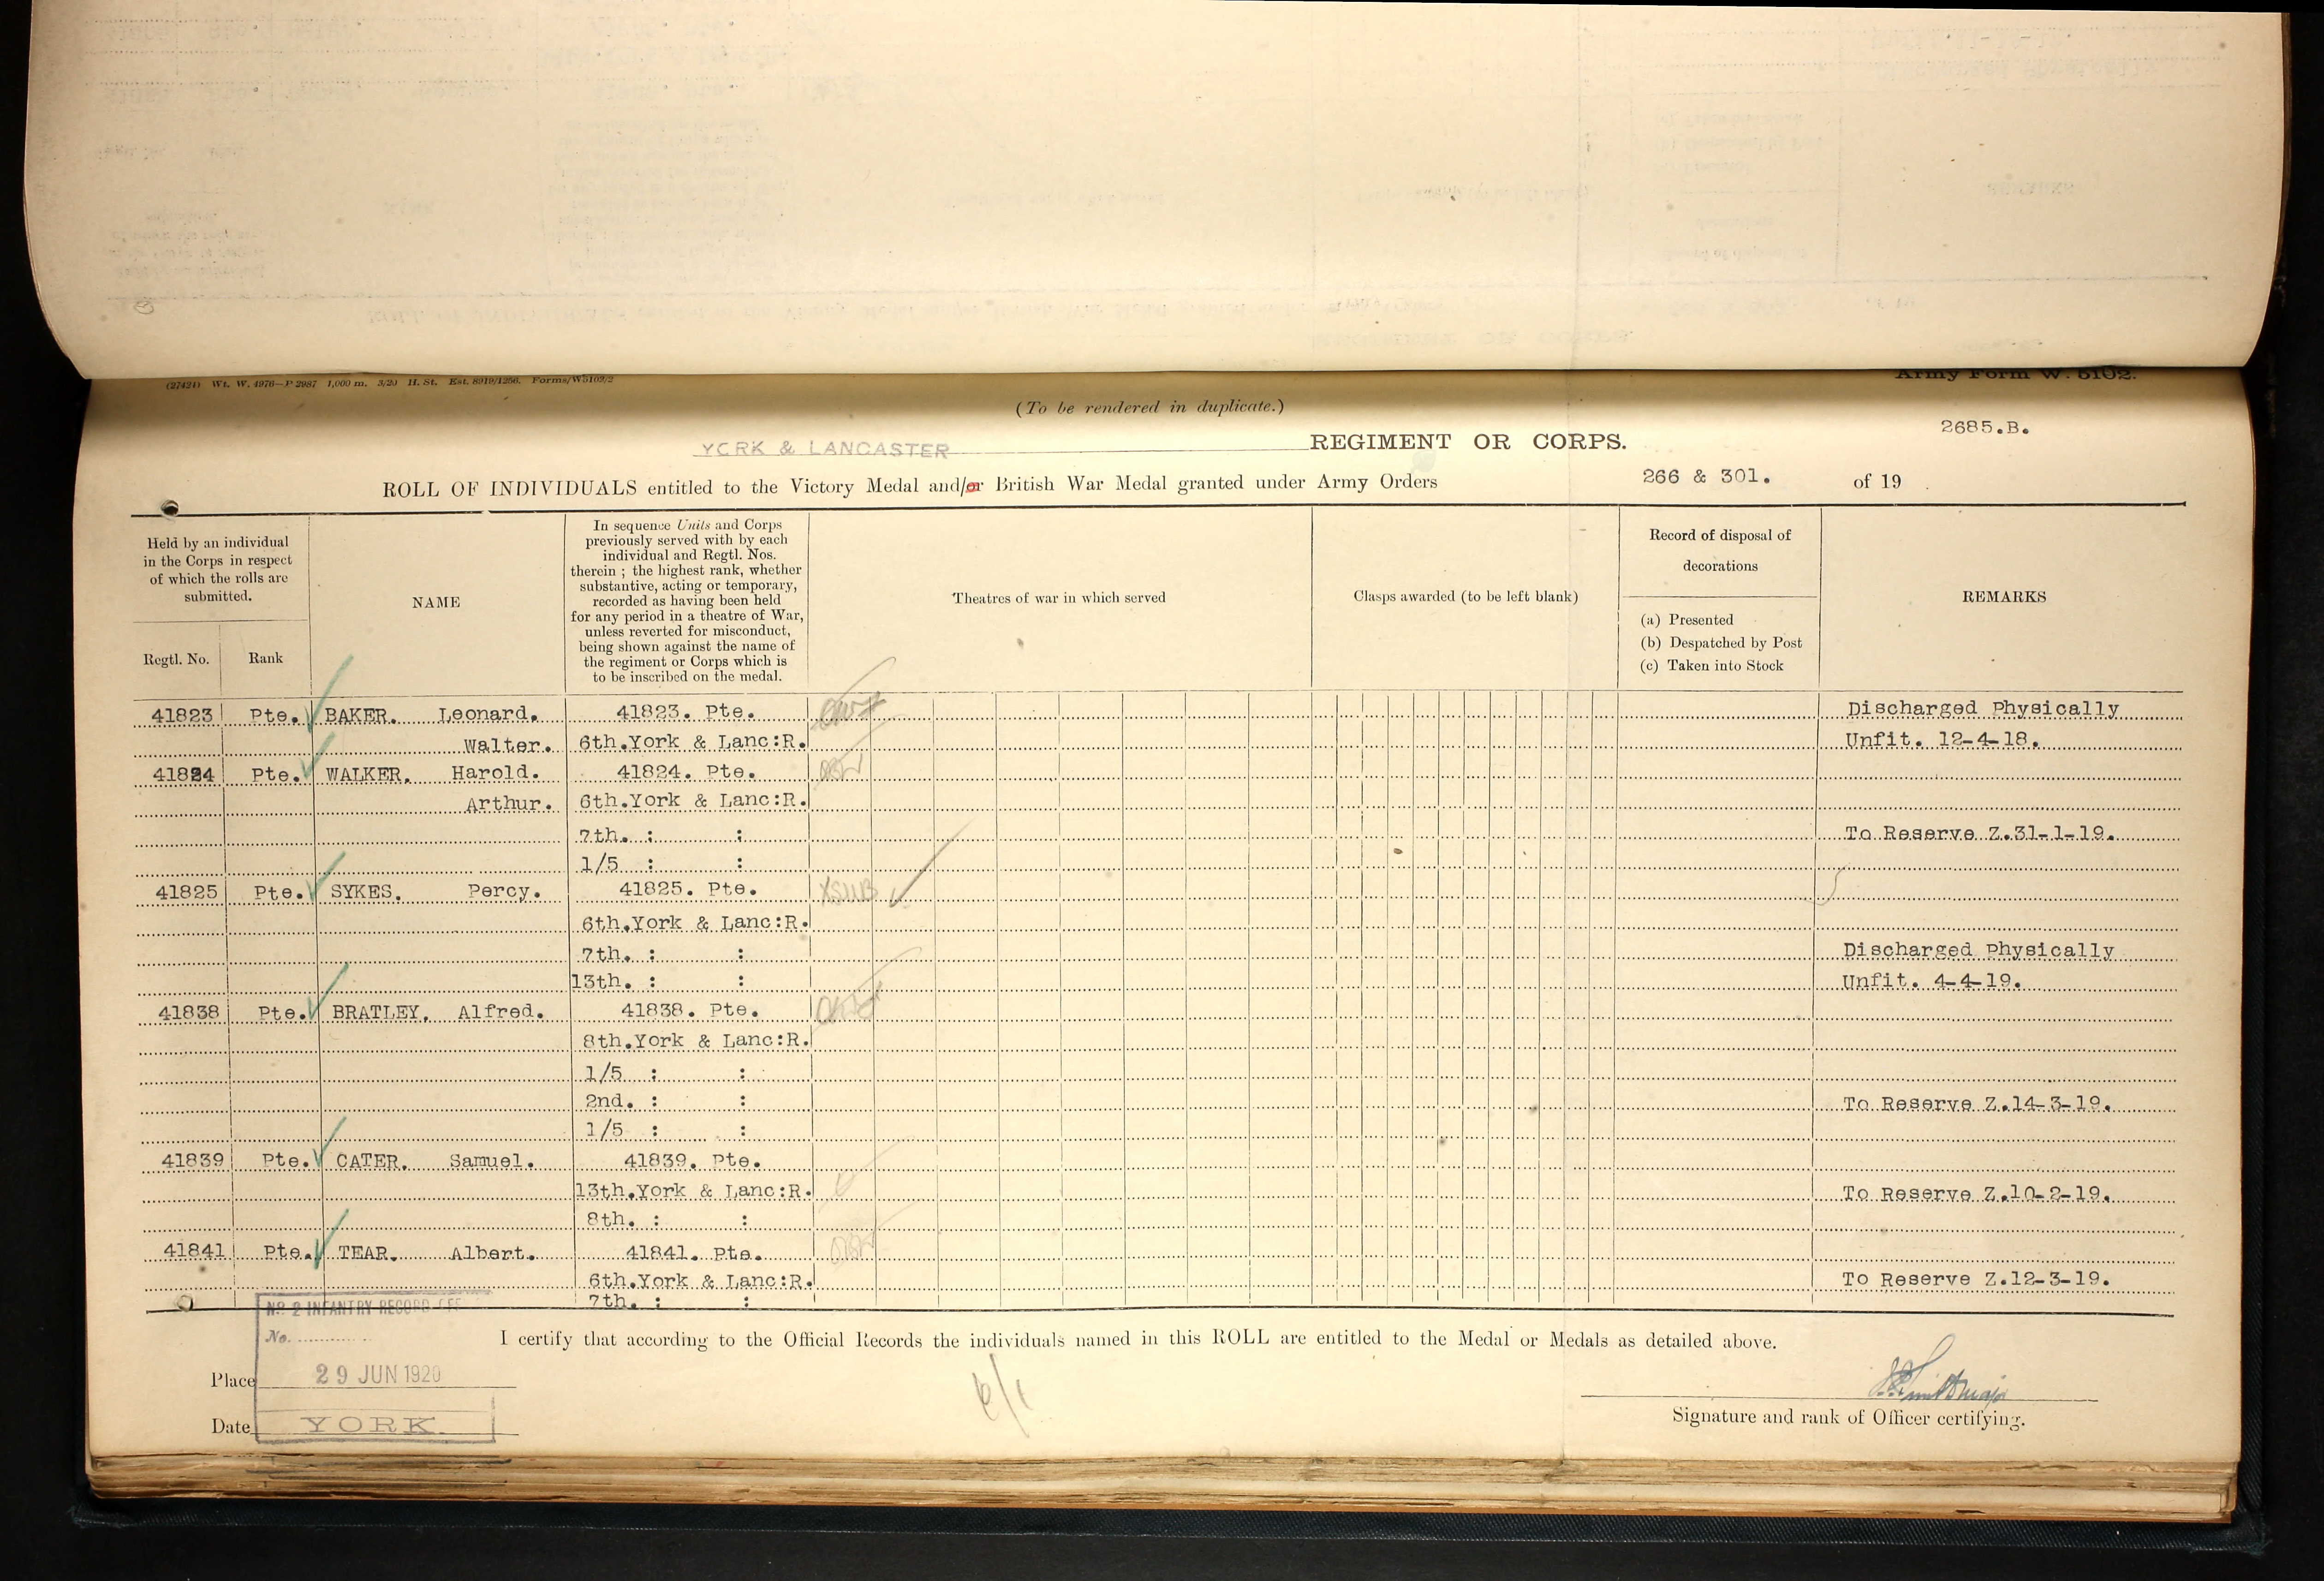 (27424) Wt. W. 4976—P 2987 1,000 m. 3/20 H. St. Est. 8919/1256. Forms/W5102/2
Army Form W. 5102.
(To be rendered in duplicate.)
2685.B.
YORK & LANCASTER REGIMENT OR CORPS.
ROLL OF INDIVIDUALS entitled to the Victory Medal and/or British War Medal granted under Army Orders 266 & 301. of 19
Held by an individual
in the Corps in respect
of which the rolls are
submitted.
Regtl. No.
Rank
NAME
In sequence Units and Corps
previously served with by each
individual and Regtl. Nos.
therein ; the highest rank, whether
substantive, acting or temporary,
recorded as having been held
for any period in a theatre of War,
unless reverted for misconduct,
being shown against the name of
the regiment or Corps which is
to be inscribed on the medal.
Theatres of war in which served
Clasps awarded (to be left blank)
Record of disposal of
decorations
(a) Presented
(b) Despatched by Post
(c) Taken into Stock
REMARKS
41823 Pte. BAKER. Leonard. 41823. Pte. Discharged Physically
Walter. 6th.York & Lanc:R. Unfit. 12-4-18.
41824 Pte. WALKER. Harold. 41824. Pte.
Arthur. 6th.York & Lanc:R.
7th. : : To Reserve Z.31-1-19.
1/5 : :
41825 Pte. SYKES. Percy. 41825. Pte.
6th.York & Lanc:R.
7th. : : Discharged Physically
13th. : : Unfit. 4-4-19.
41838 Pte. BRATLEY. Alfred. 41838. Pte.
8th.York & Lanc:R.
1/5 : :
2nd. : : To Reserve Z.14-3-19.
1/5 : :
41839 Pte. CATER. Samuel. 41839. Pte.
13th.York & Lanc:R. To Reserve Z.10-2-19.
8th. : :
41841 Pte. TEAR. Albert. 41841. Pte.
6th.York & Lanc:R. To Reserve Z.12-3-19.
7th. : :
No. 2 INFANTRY RECORD
No.
I certify that according to the Official Records the individuals named in this ROLL are entitled to the Medal or Medals as detailed above.
Place 29 JUN 1920
Date YORK
Signature and rank of Officer certifying.